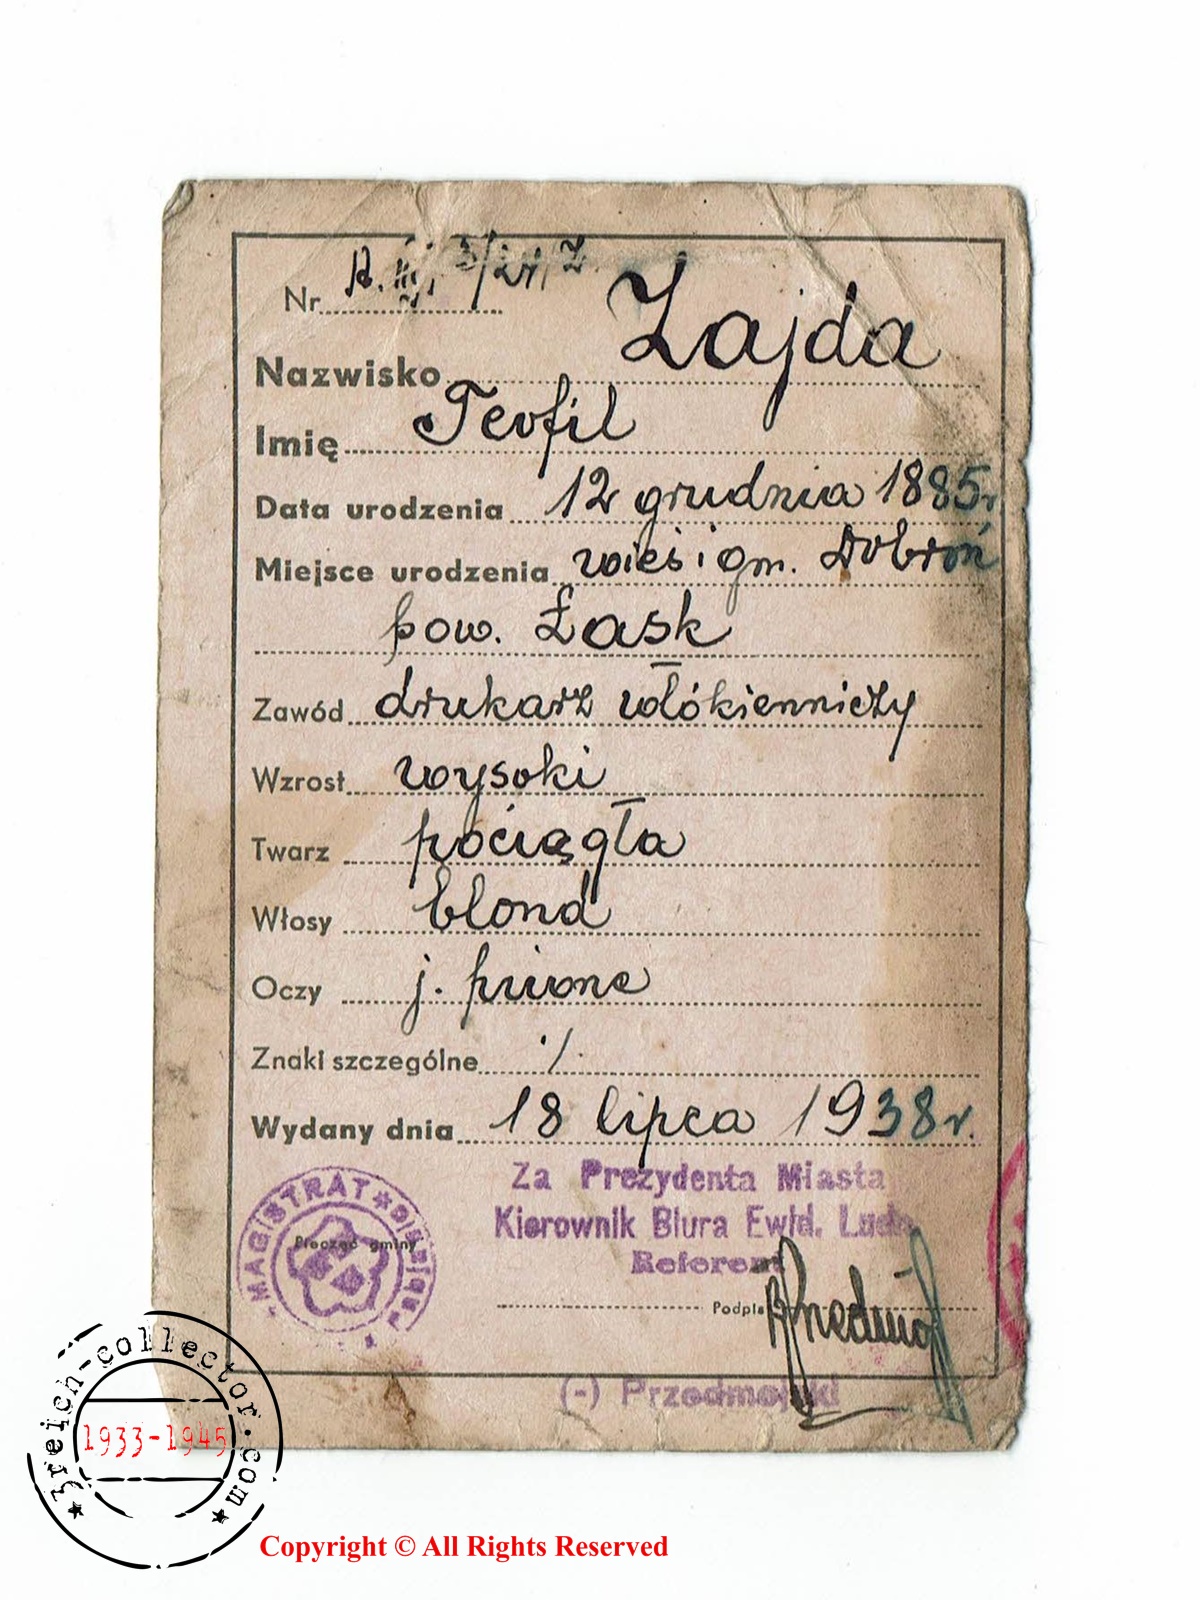 Nr
Nazwisko Zajda
Imię Teofil
Data urodzenia 12 grudnia 1885r
Miejsce urodzenia wieś i gm. Dobroń
pow. Łask
Zawód drukarz włókienniczy
Wzrost wysoki
Twarz pociągła
Włosy blond
Oczy j. piwne
Znaki szczególne ./.
Wydany dnia 18 lipca 1938 r.
Za Prezydenta Miasta
Kierownik Biura Ewid. Ludn.
Referent
MAGISTRAT
Pieczęć gminy
Podpis
(-) Przedmojski
3reich-collector.com
1933-1945
Copyright © All Rights Reserved